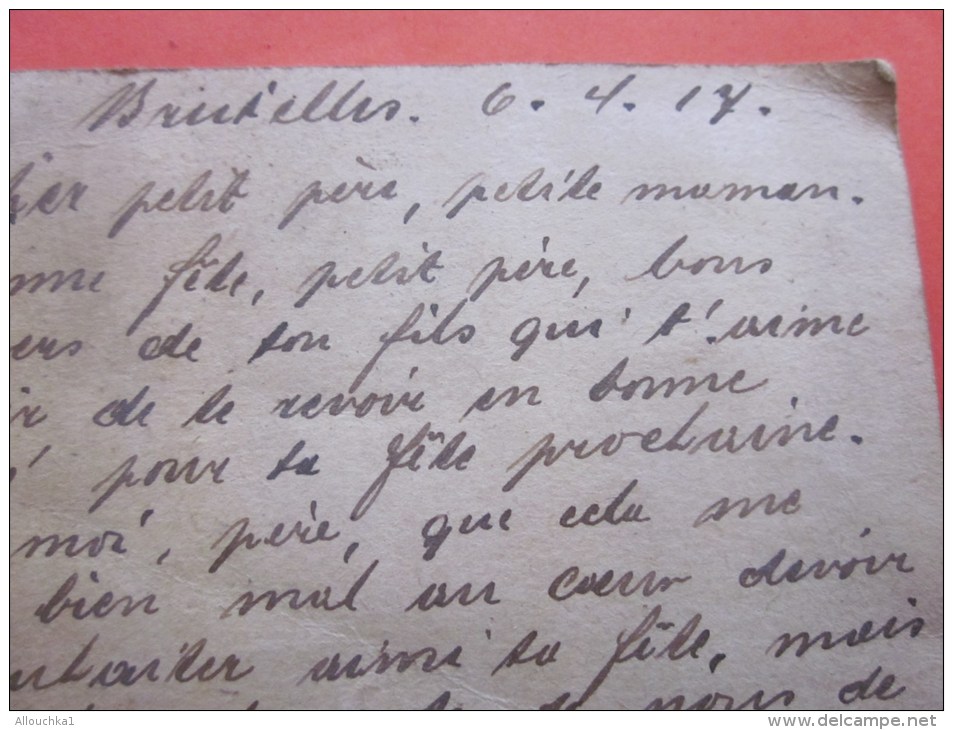 Bruxelles. 6.4.17.
petit père, petite maman.
fête, petit père, bons
de ton fils qui t'aime
de te revoir en bonne
pour ta fête prochaine.
moi, père, que cela me
bien mal au cœur devoir
ainsi ta fête, mais
nous de
Allouchka1
delcampe.net